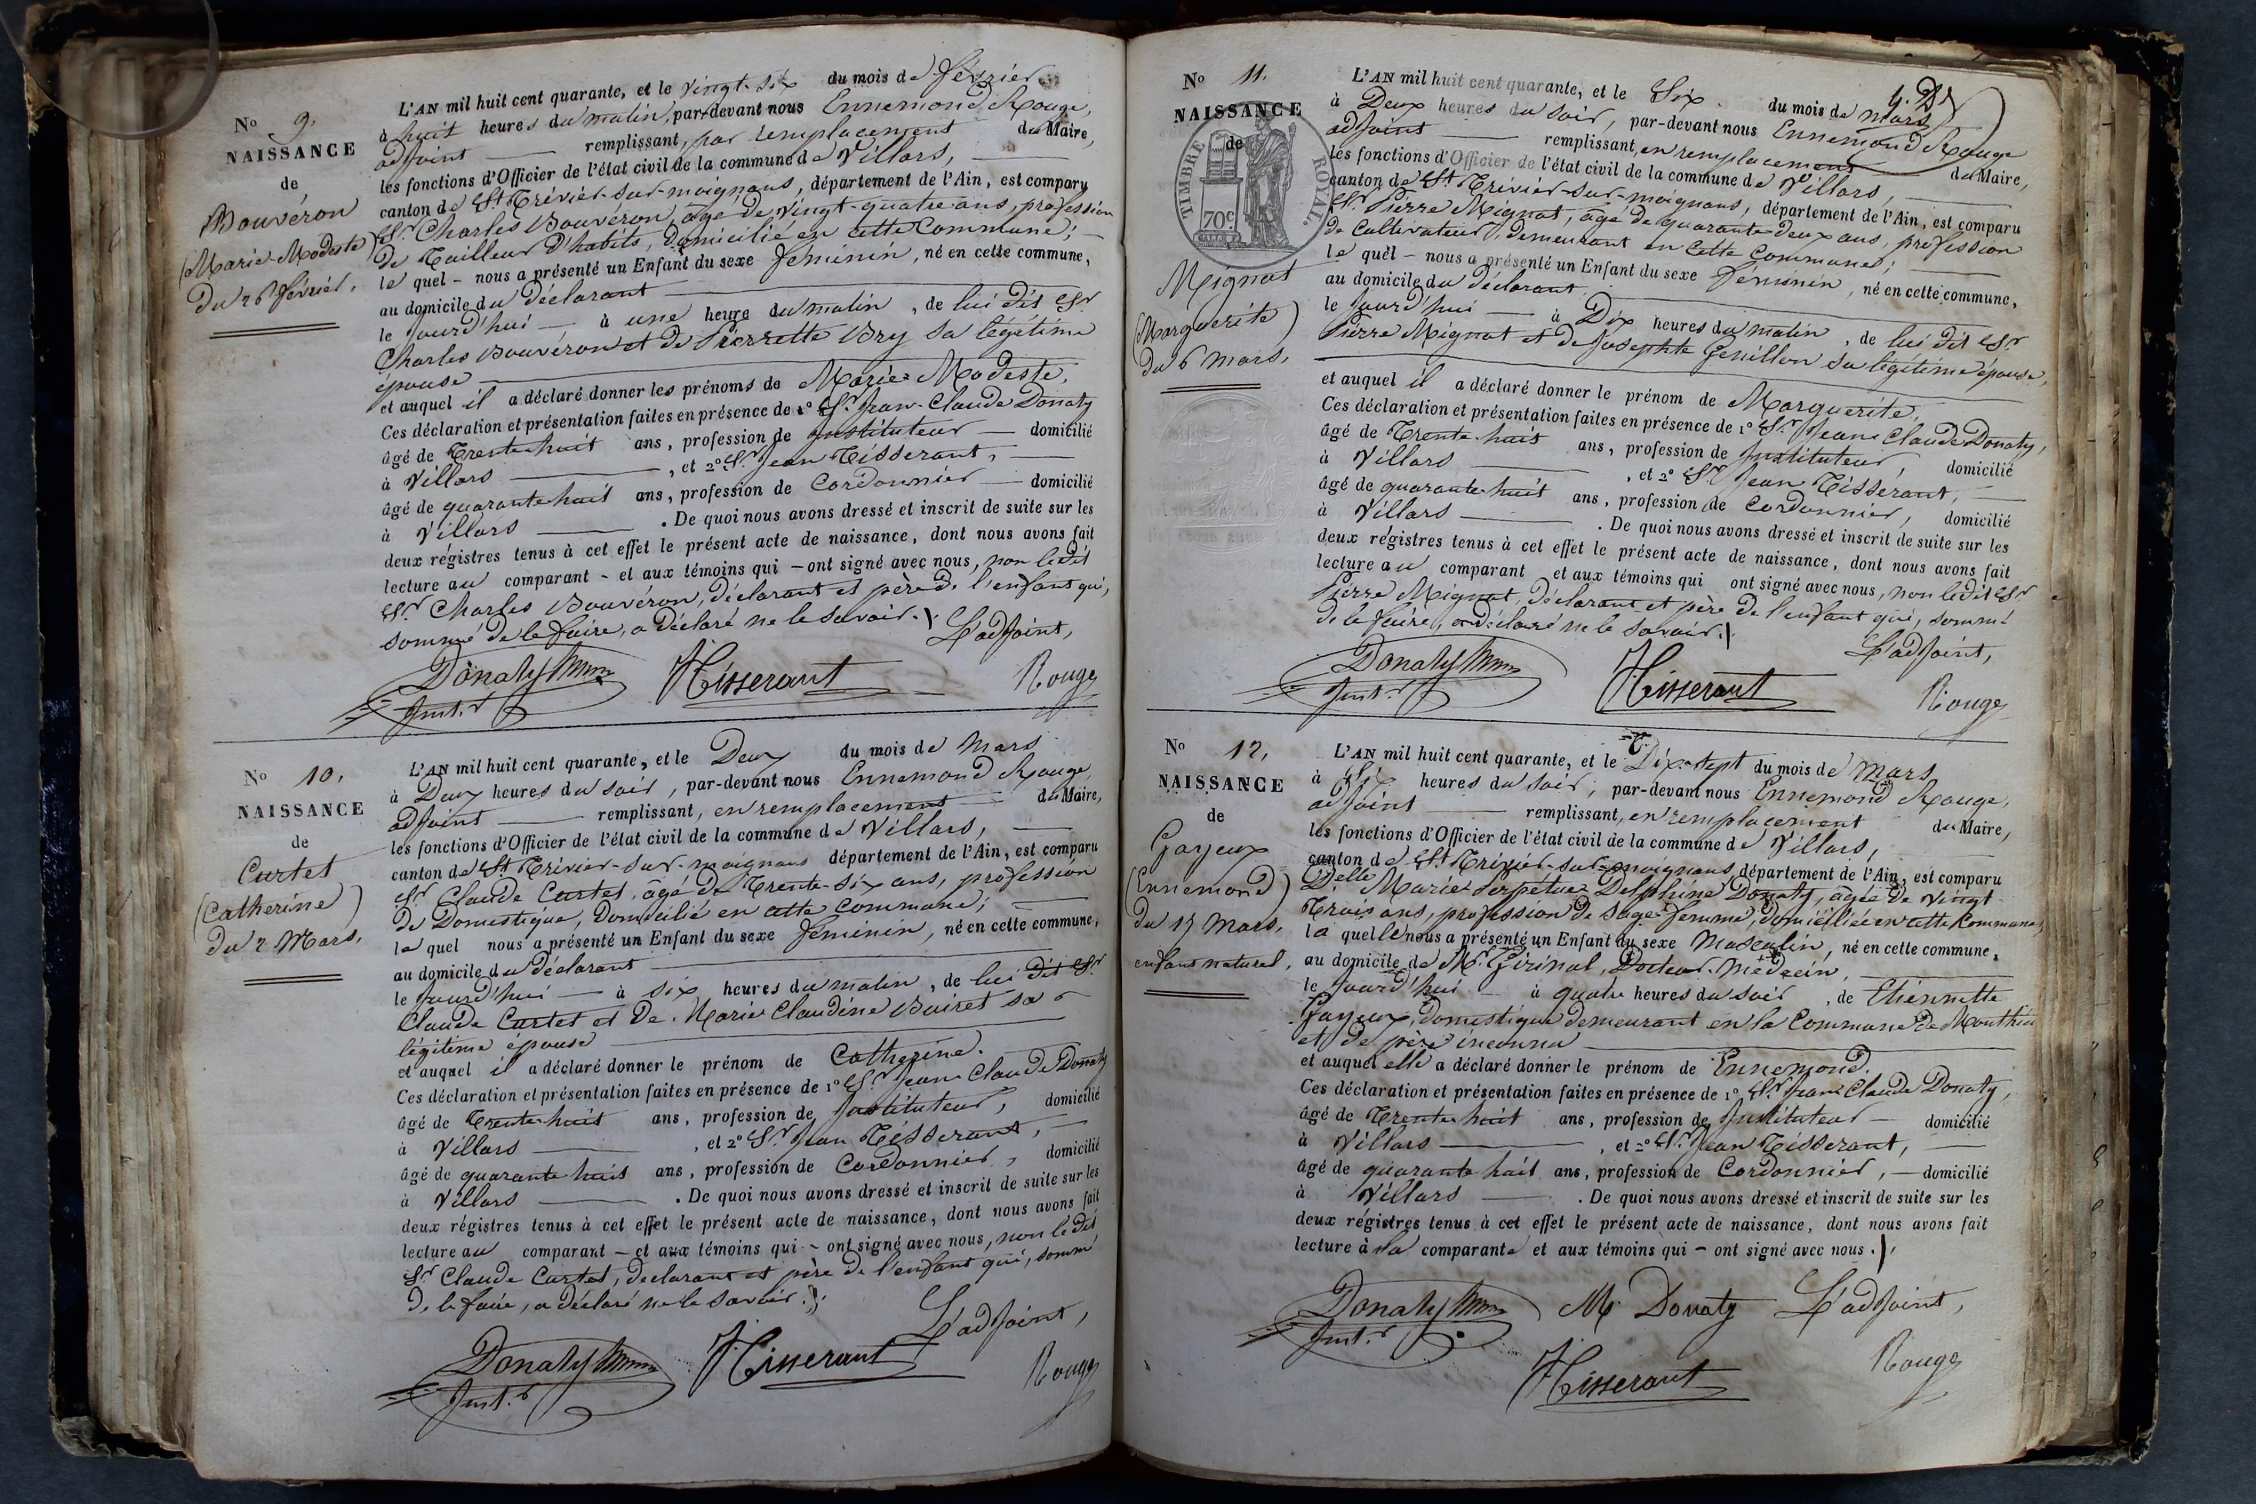 No 9.
NAISSANCE
de
Bouvéron
(Marie-Modeste)
Du 26 février.
L'AN mil huit cent quarante, et le vingt-six du mois de février
à huit heures du matin, par-devant nous Ennemond Rouge,
adjoint remplissant, par remplacement du Maire,
les fonctions d'Officier de l'état civil de la commune de Villars,
canton de St Trivier-sur-moignans, département de l'Ain, est comparu
Sr Charles Bouvéron, âgé de vingt-quatre ans, profession
de Tailleur d'habits, domicilié en cette Commune;
le quel nous a présenté un Enfant du sexe féminin, né en cette commune,
au domicile du déclarant
le jourd'hui à une heure du matin, de lui dit Sr
Charles Bouvéron et de Pierrette Bry sa légitime
épouse
et auquel il a déclaré donner les prénoms de Marie-Modeste.
Ces déclaration et présentation faites en présence de 1° Sr Jean-Claude Donaty
âgé de Trente-huit ans, profession de instituteur domicilié
à Villars, et 2° Sr Jean Tisserant,
âgé de quarante-huit ans, profession de Cordonnier domicilié
à Villars. De quoi nous avons dressé et inscrit de suite sur les
deux régistres tenus à cet effet le présent acte de naissance, dont nous avons fait
lecture au comparant et aux témoins qui ont signé avec nous, non ledit
Sr Charles Bouvéron, déclarant et père de l'enfant qui,
sommé de le faire, a déclaré ne le savoir.
L'adjoint,
Donaty
Inst.r
JTisserant
Rouge
No 10.
NAISSANCE
de
Curtet
(Catherine)
Du 2 Mars.
L'AN mil huit cent quarante, et le Deux du mois de Mars
à Deux heures du soir, par-devant nous Ennemond Rouge,
adjoint remplissant, en remplacement du Maire,
les fonctions d'Officier de l'état civil de la commune de Villars,
canton de St Trivier-sur-moignans département de l'Ain, est comparu
Sr Claude Curtet, âgé de Trente-six ans, profession
de Domestique, domicilié en cette commune;
le quel nous a présenté un Enfant du sexe féminin, né en cette commune,
au domicile du déclarant
le jourd'hui à six heures du matin, de lui dit Sr
Claude Curtet et de Marie Claudine Buiret sa
légitime épouse
et auquel il a déclaré donner le prénom de Catherine.
Ces déclaration et présentation faites en présence de 1° Sr Jean Claude Donaty
âgé de Trente-huit ans, profession de Instituteur, domicilié
à Villars, et 2° Sr Jean Tisserant,
âgé de quarante-huit ans, profession de Cordonnier, domicilié
à Villars. De quoi nous avons dressé et inscrit de suite sur les
deux régistres tenus à cet effet le présent acte de naissance, dont nous avons fait
lecture au comparant et aux témoins qui ont signé avec nous, non ledit
Sr Claude Curtet, déclarant et père de l'enfant qui, sommé
de le faire, a déclaré ne le savoir.
L'adjoint,
Donaty
Inst.r
JTisserant
Rouge
No 11.
NAISSANCE
de
TIMBRE ROYAL.
70c
Mignat
(Marguerite)
du 6 mars.
L'AN mil huit cent quarante, et le Six du mois de mars
à Deux heures du soir, par-devant nous Ennemond Rouge
adjoint remplissant, en remplacement du Maire,
les fonctions d'Officier de l'état civil de la commune de Villars,
canton de St Trivier-sur-moignans, département de l'Ain, est comparu
Sr Pierre Mignat, âgé de quarante deux ans, profession
de cultivateur, demeurant en cette Commune;
le quel nous a présenté un Enfant du sexe féminin, né en cette commune,
au domicile du déclarant
le jourd'hui à Dix heures du matin, de lui dit Sr
Pierre Mignat et de Josephte Genillon sa légitime épouse,
et auquel il a déclaré donner le prénom de Marguerite.
Ces déclaration et présentation faites en présence de 1° Sr Jean Claude Donaty,
âgé de Trente-huit ans, profession de Instituteur, domicilié
à Villars, et 2° Sr Jean Tisserant,
âgé de quarante-huit ans, profession de Cordonnier, domicilié
à Villars. De quoi nous avons dressé et inscrit de suite sur les
deux régistres tenus à cet effet le présent acte de naissance, dont nous avons fait
lecture au comparant et aux témoins qui ont signé avec nous, non ledit Sr
Pierre Mignat, déclarant et père de l'enfant qui, sommé
de le faire, a déclaré ne le savoir.
L'adjoint,
Donaty
Inst.r
JTisserant
Rouge
No 12.
NAISSANCE
de
Gayeux
(Ennemond)
du 17 Mars.
enfant naturel.
L'AN mil huit cent quarante, et le Dix-sept du mois de Mars
à Six heures du soir, par-devant nous Ennemond Rouge,
adjoint remplissant, en remplacement du Maire,
les fonctions d'Officier de l'état civil de la commune de Villars,
canton de St Trivier-sur-moignans, département de l'Ain, est comparu
Delle Marie Perpétue Delphine Donaty, âgée de vingt
Trois ans, profession de sage-femme, domiciliée en cette Commune,
la quelle nous a présenté un Enfant du sexe Masculin, né en cette commune,
au domicile de Mr Girinal, Docteur-Médecin,
le jourd'hui à quatre heures du soir, de Etiennette
Gayeux, domestique demeurant en la Commune de Monthieu
et de père inconnu
et auquel elle a déclaré donner le prénom de Ennemond.
Ces déclaration et présentation faites en présence de 1° Sr Jean Claude Donaty,
âgé de Trente-huit ans, profession de Instituteur domicilié
à Villars, et 2° Sr Jean Tisserant,
âgé de quarante-huit ans, profession de Cordonnier, domicilié
à Villars. De quoi nous avons dressé et inscrit de suite sur les
deux régistres tenus à cet effet le présent acte de naissance, dont nous avons fait
lecture à la comparante et aux témoins qui ont signé avec nous.
Donaty
Inst.r
M Donaty
L'adjoint,
JTisserant
Rouge